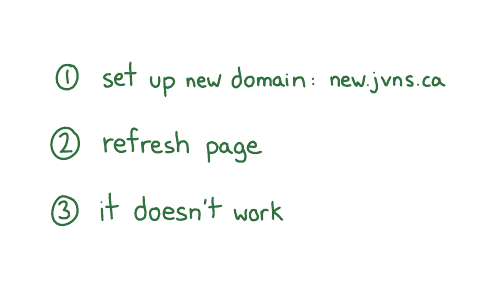 ① set up new domain: new.jvns.ca
② refresh page
③ it doesn't work